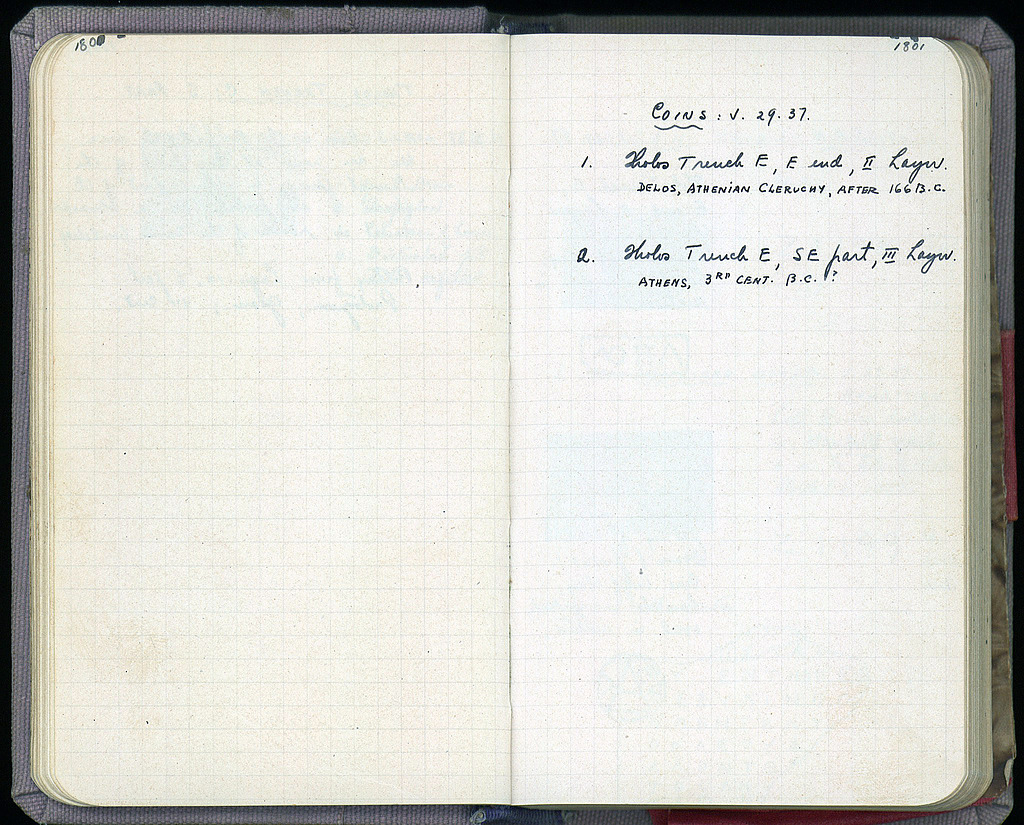 1800
1801
COINS : V. 29. 37.
1. Tholos Trench E, E end, II Layer.
DELOS, ATHENIAN CLERUCHY, AFTER 166 B.C.
2. Tholos Trench E, SE part, III Layer.
ATHENS, 3RD CENT. B.C.?